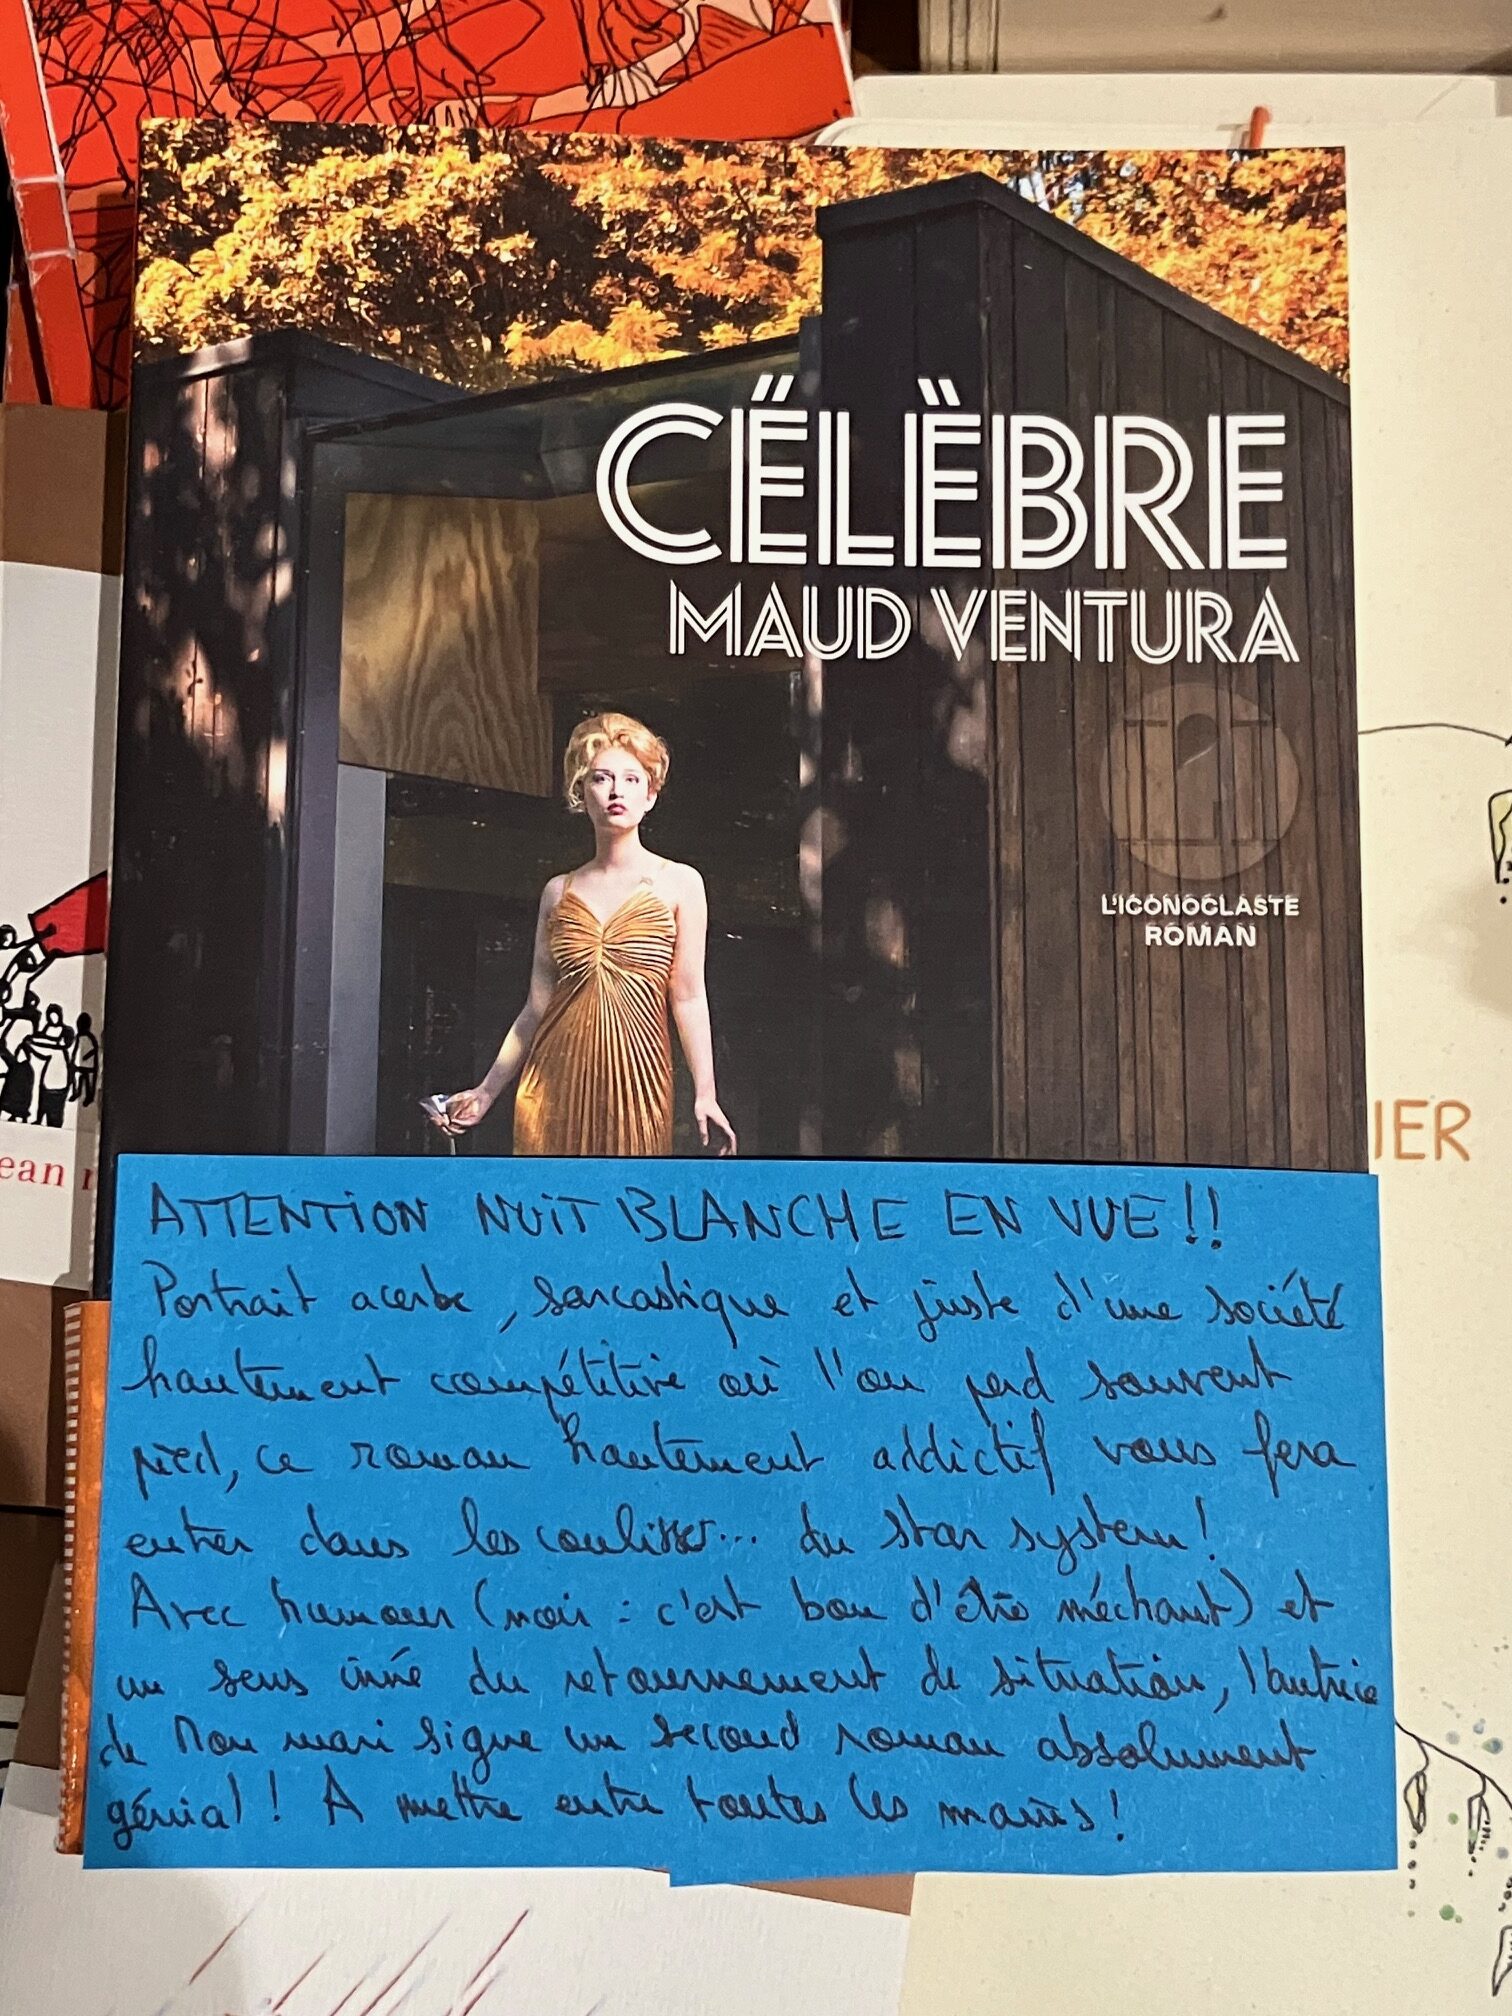 CÉLÈBRE
MAUD VENTURA
L'ICONOCLASTE
ROMAN
IER
ean
ATTENTION NUIT BLANCHE EN VUE !!
Portrait acerbe, sarcastique et juste d'une société
hautement compétitive où l'on perd souvent
pied, ce roman hautement addictif vous fera
entrer dans les coulisses... du star system !
Avec humour (noir : c'est bon d'être méchant) et
un sens inné du retournement de situation, l'autrice
de Mon mari signe un second roman absolument
génial ! A mettre entre toutes les mains !